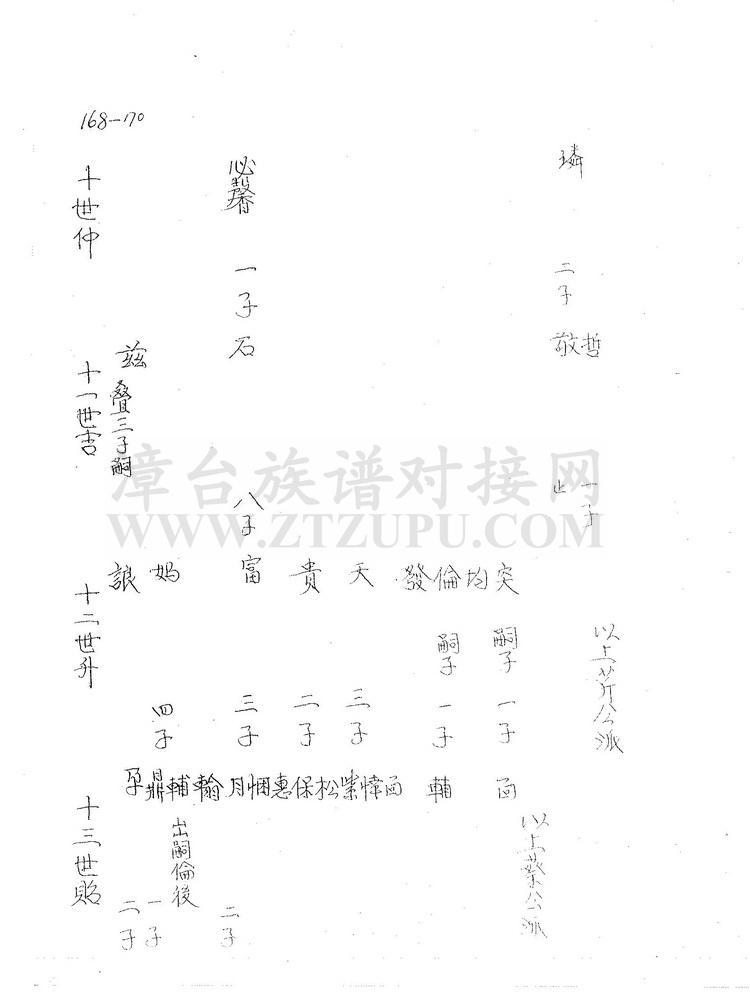 168-170
十世仲
必馨
璘
一子
二子
石
敬
哲
十一世吉
茲
叠三子嗣
八子
止
一子
漳台族谱对接网
WWW.ZTZUPU.COM
十二世升
誏
妈
富
貴
天
發
倫
均
突
嗣子
嗣子
四子
三子
二子
三子
一子
一子
以上芹公派
十三世貽
孕
鼎
輔
月
悃
惠
保
松
紫
愇
函
輔
函
出嗣倫後
二子
一子
二子
以上蔡公派